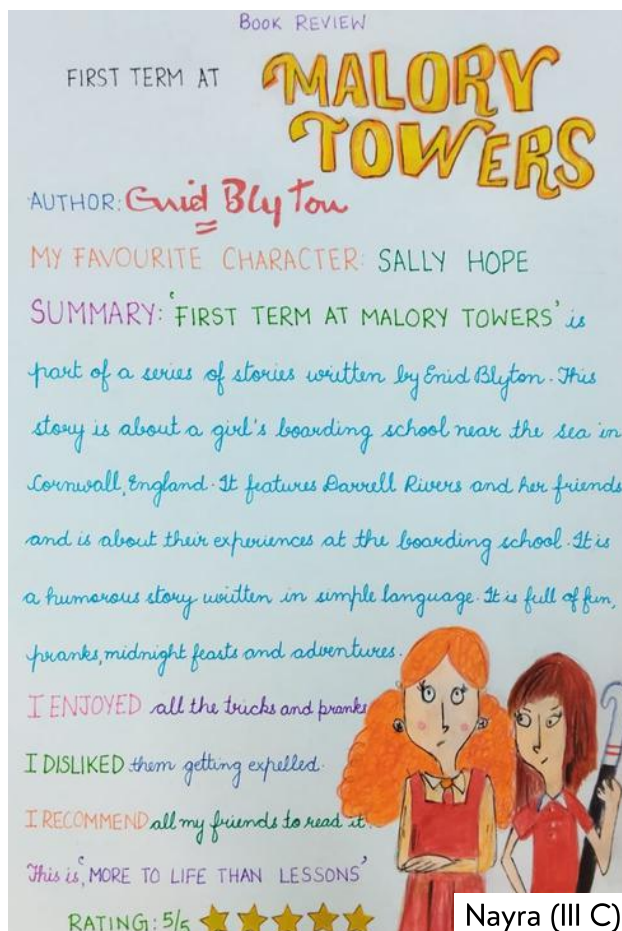 BOOK REVIEW
FIRST TERM AT MALORY
TOWERS
AUTHOR: Enid Blyton
MY FAVOURITE CHARACTER: SALLY HOPE
SUMMARY: 'FIRST TERM AT MALORY TOWERS' is
part of a series of stories written by Enid Blyton. This
story is about a girl's boarding school near the sea in
Cornwall, England. It features Darrell Rivers and her friends
and is about their experiences at the boarding school. It is
a humorous story written in simple language. It is full of fun,
pranks, midnight feasts and adventures.
I ENJOYED all the tricks and pranks
I DISLIKED them getting expelled.
I RECOMMEND all my friends to read it.
This is, 'MORE TO LIFE THAN LESSONS'
RATING: 5/5
Nayra (III C)